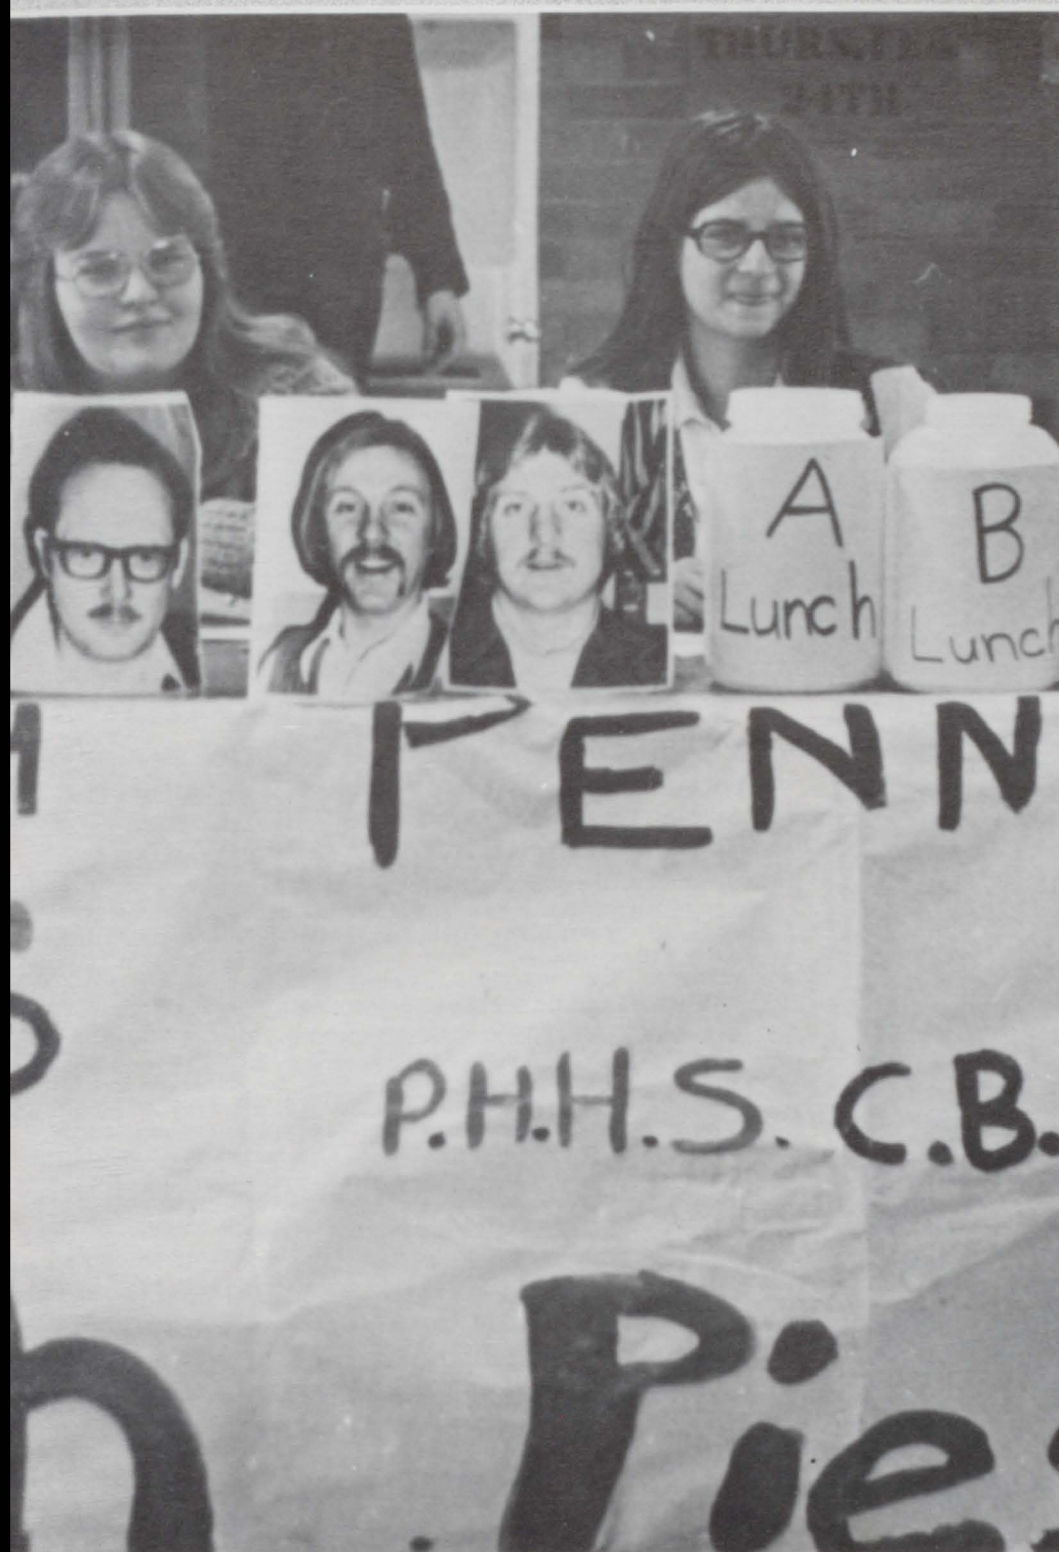 THURSDAY
24TH
A
Lunch
B
Lunch
PENN
P.H.H.S. C.B.
Pies